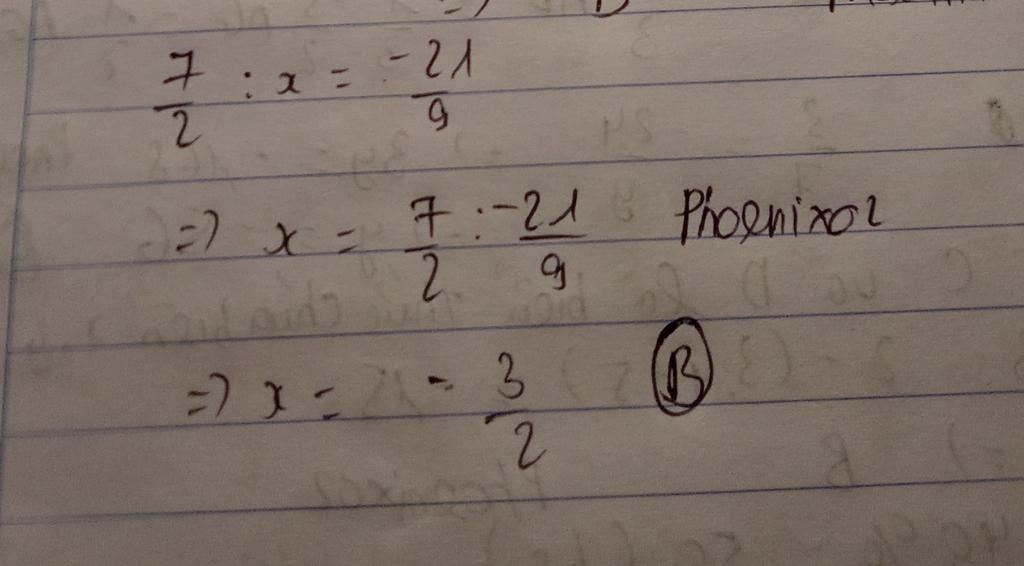 7/2 : x = -21/9
=> x = 7/2 : -21/9 Phoenixo2
=> x = -3/2 B